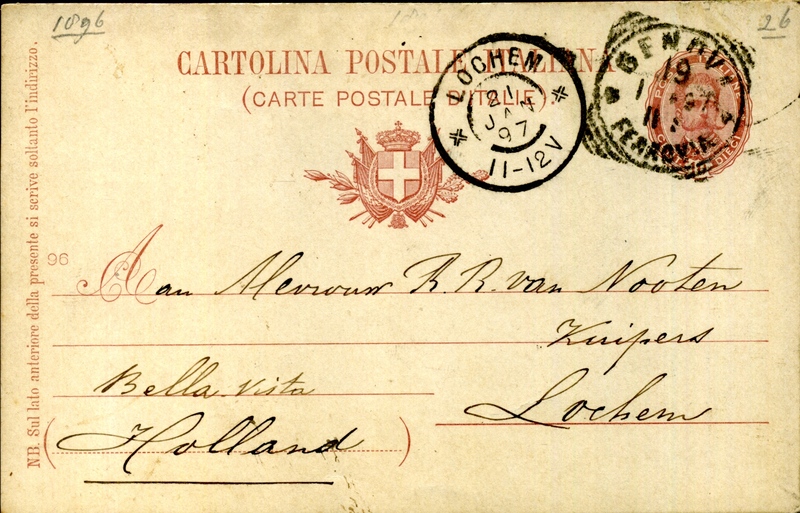 1896
26
CARTOLINA POSTALE ITALIANA
(CARTE POSTALE D'ITALIE)
LOCHEM
21
JAN
97
11-12V
GENOVA
19
FERROVIA
DIECI
96
Aan Mevrouw R. R. van Nooten
Kuipers
Bella Vista
Lochem
(Holland)
NB. Sul lato anteriore della presente si scrive soltanto l'indirizzo.